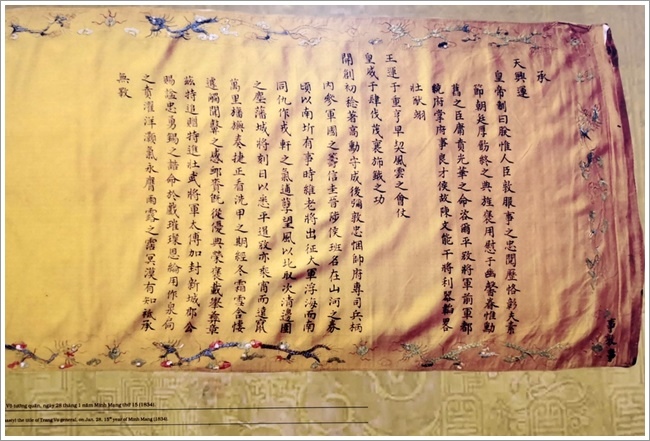 承
天興運
皇帝制曰朕惟人臣敦服事之忠閱歷恪彰夫耆
節朝廷厚飭終之典旌褒用慰于幽馨眷惟勳
舊之臣庸賁光華之命咨爾平敵將軍前軍都
統府掌府事良才侯故陳文能干將利器韜畧
壯猷翊
王運于重亨早契風雲之會仗
皇威于肆伐茂褒斾鉞之功
開創初稔著高勳守成後彌敦忠悃帥府專司兵柄
內參軍國之籌信圭晉陟侯班名在山河之券
頃以南圻有事時維老將出征大軍浮海而南
同仇作戎軒之氣逋孽望風以北取次清邊圉
之塵藩城將刻日以悉平逆敵亦乘宵而遁鼠
萬里播奏捷正看洗甲之期經冬霜雪含悽
遽觸聞鼙之感卹賚既從優典榮褒載舉彝章
茲特追贈特進壯武將軍太傅加封新城郡公
賜諡忠勇錫之誥命於戲璀璨恩綸用作泉
之賁洋灝氣永膺雨露之霑冥漠有知祗承
無斁
Võ tướng quân, ngày 28 tháng 1 năm Minh Mạng thứ 15 (1834)
the title of Trang Vo general, on Jan. 28, 15th year of Minh Mang (1834)